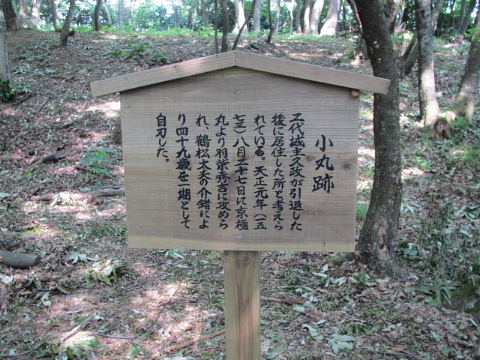 小丸跡
二代城主久政が引退した
後に居住した所と考えら
れている。天正元年（一五
七三）八月二十七日に京極
丸より羽柴秀吉に攻めら
れ、鶴松太夫の介錯によ
り四十九歳を一期として
自刃した。